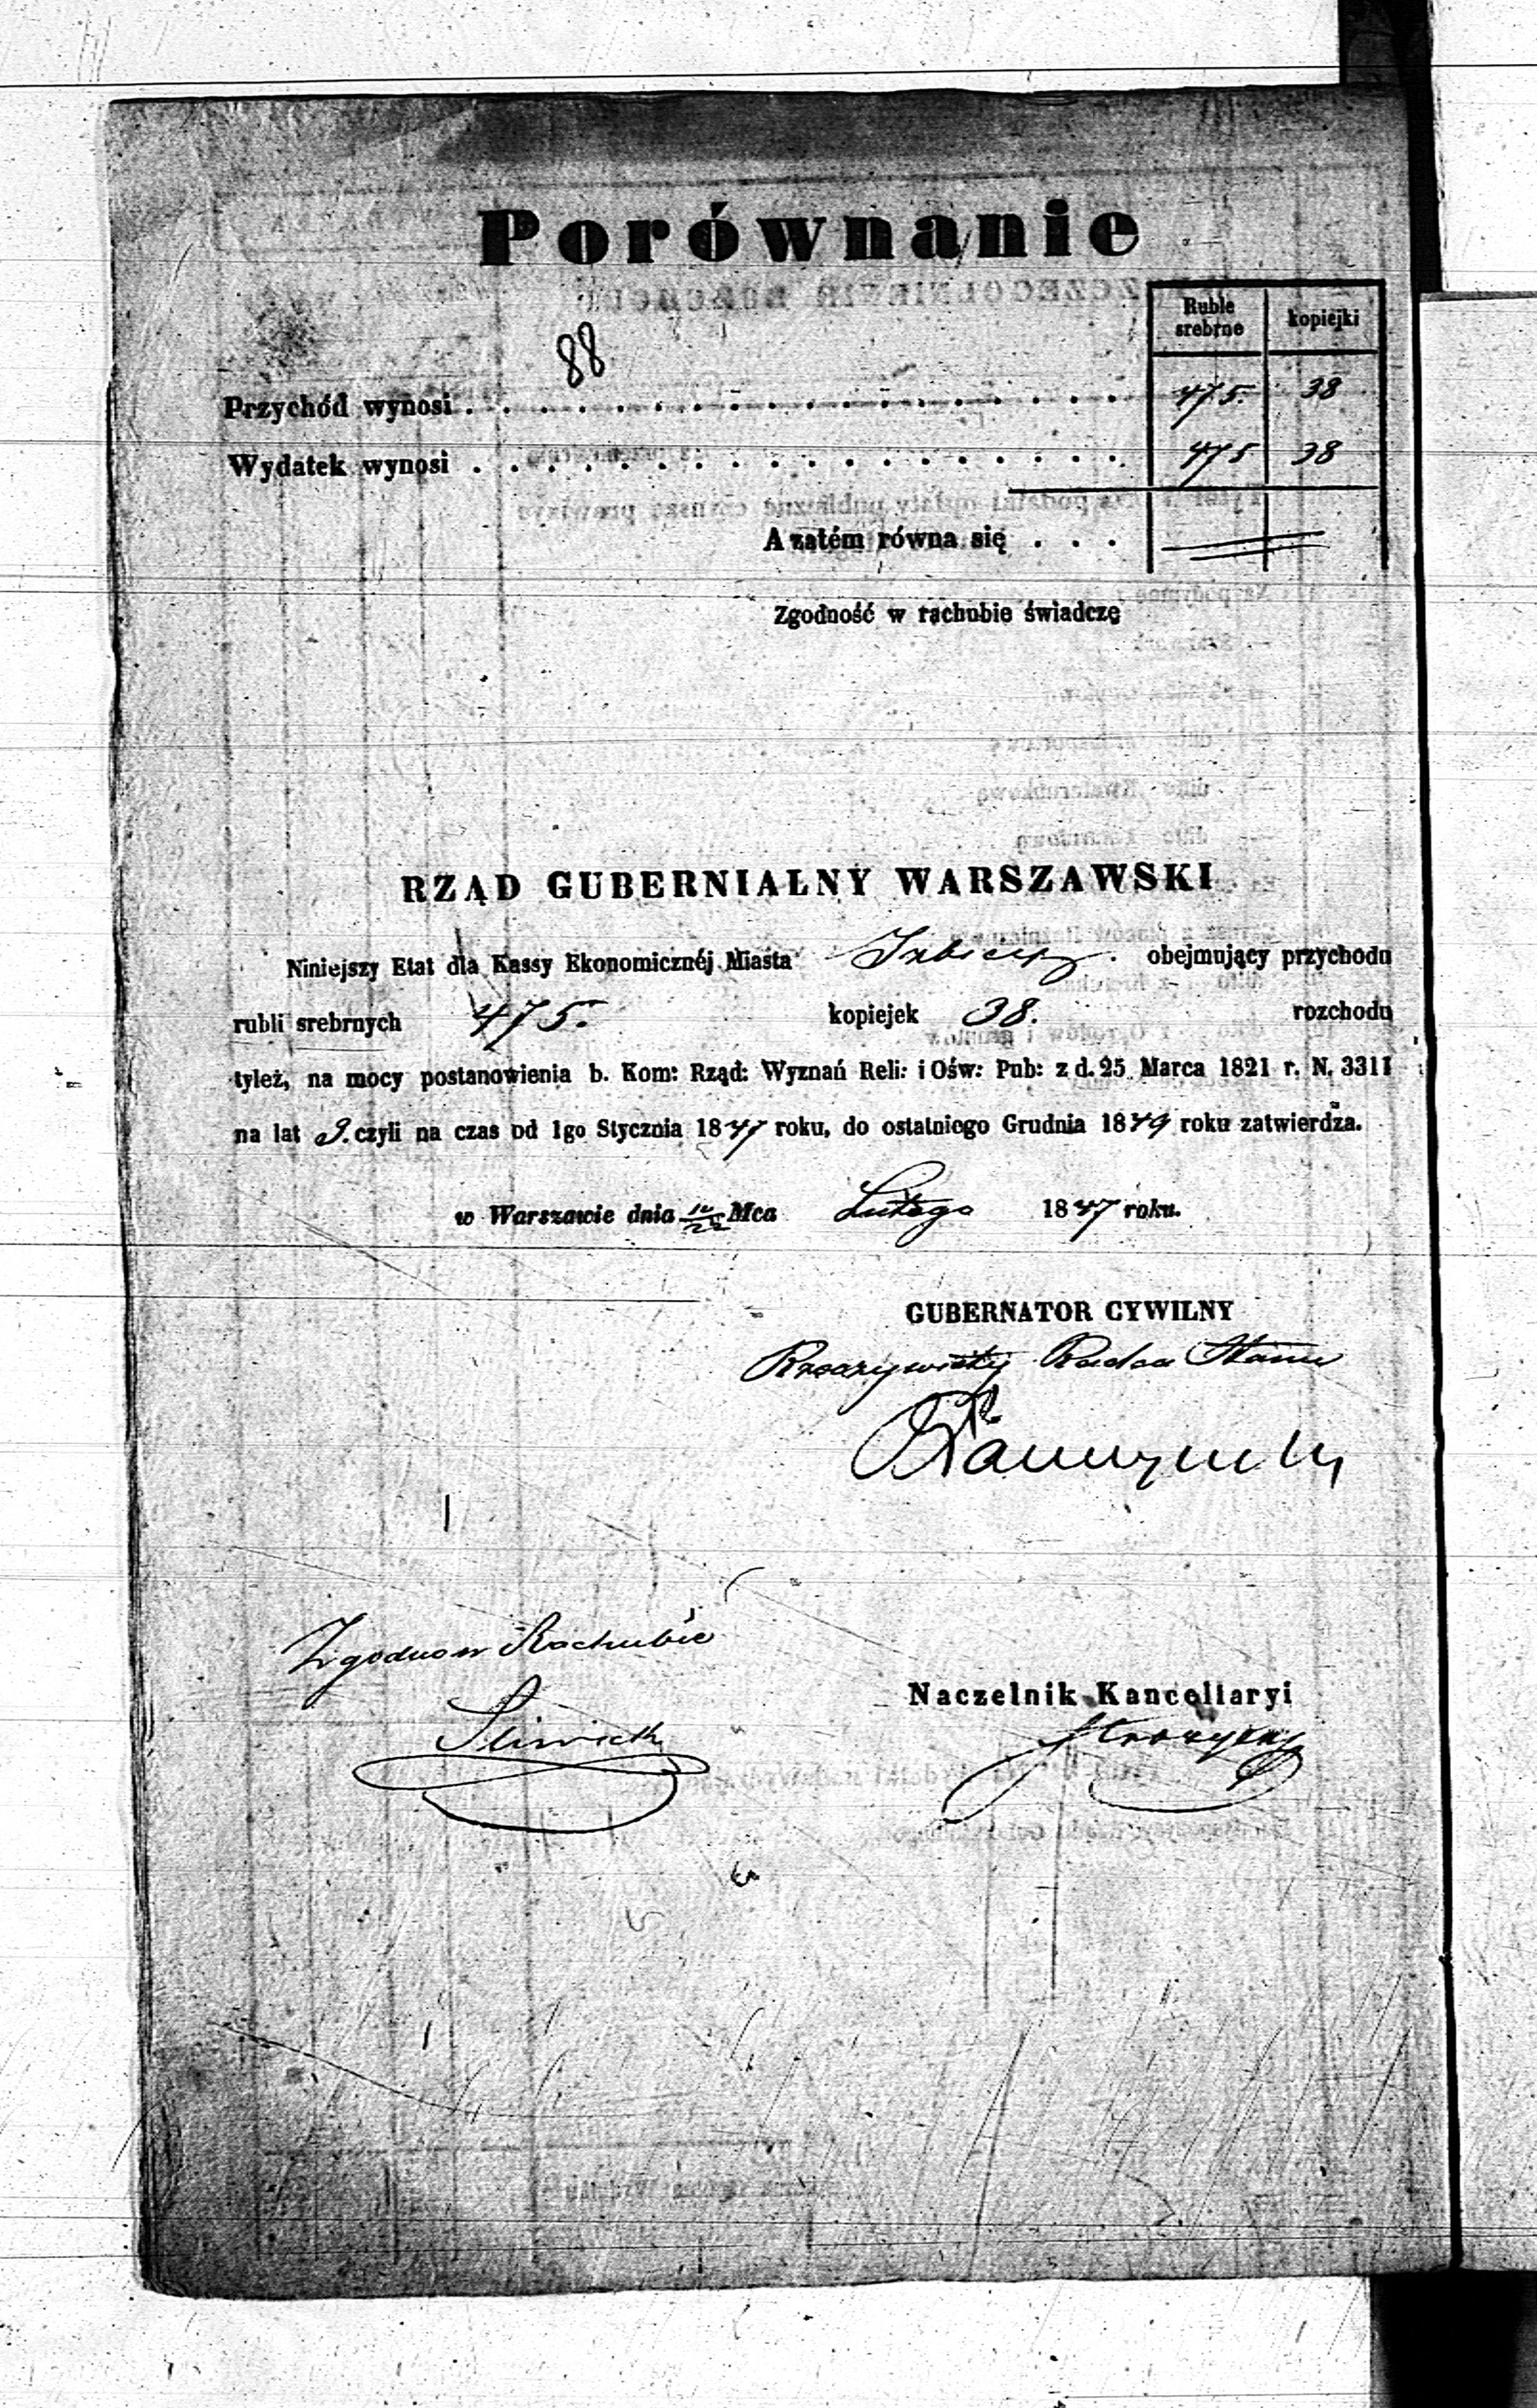 Porównanie
Ruble srebrne kopiejki
88
Przychód wynosi . . . . . . . . . . . . . . . . . . 475. 38
Wydatek wynosi . . . . . . . . . . . . . . . . . . 475 38
A zatém równa się . . .
Zgodność w rachubie świadczę
RZĄD GUBERNIALNY WARSZAWSKI
Niniejszy Etat dla Kassy Ekonomicznéj Miasta Izbicy. obejmujący przychodu
rubli srebrnych 475. kopiejek 38. rozchodu
tyleż, na mocy postanowienia b. Kom: Rząd: Wyznań Reli: i Ośw: Pub: z d. 25 Marca 1821 r. N. 3311
na lat 3. czyli na czas od 1go Stycznia 1847 roku, do ostatniego Grudnia 1849 roku zatwierdza.
w Warszawie dnia 10/22 Mca Lutego 1847 roku.
GUBERNATOR CYWILNY
Rzeczywisty Radca Stanu
Zgodno w Rachubie
Naczelnik Kancellaryi